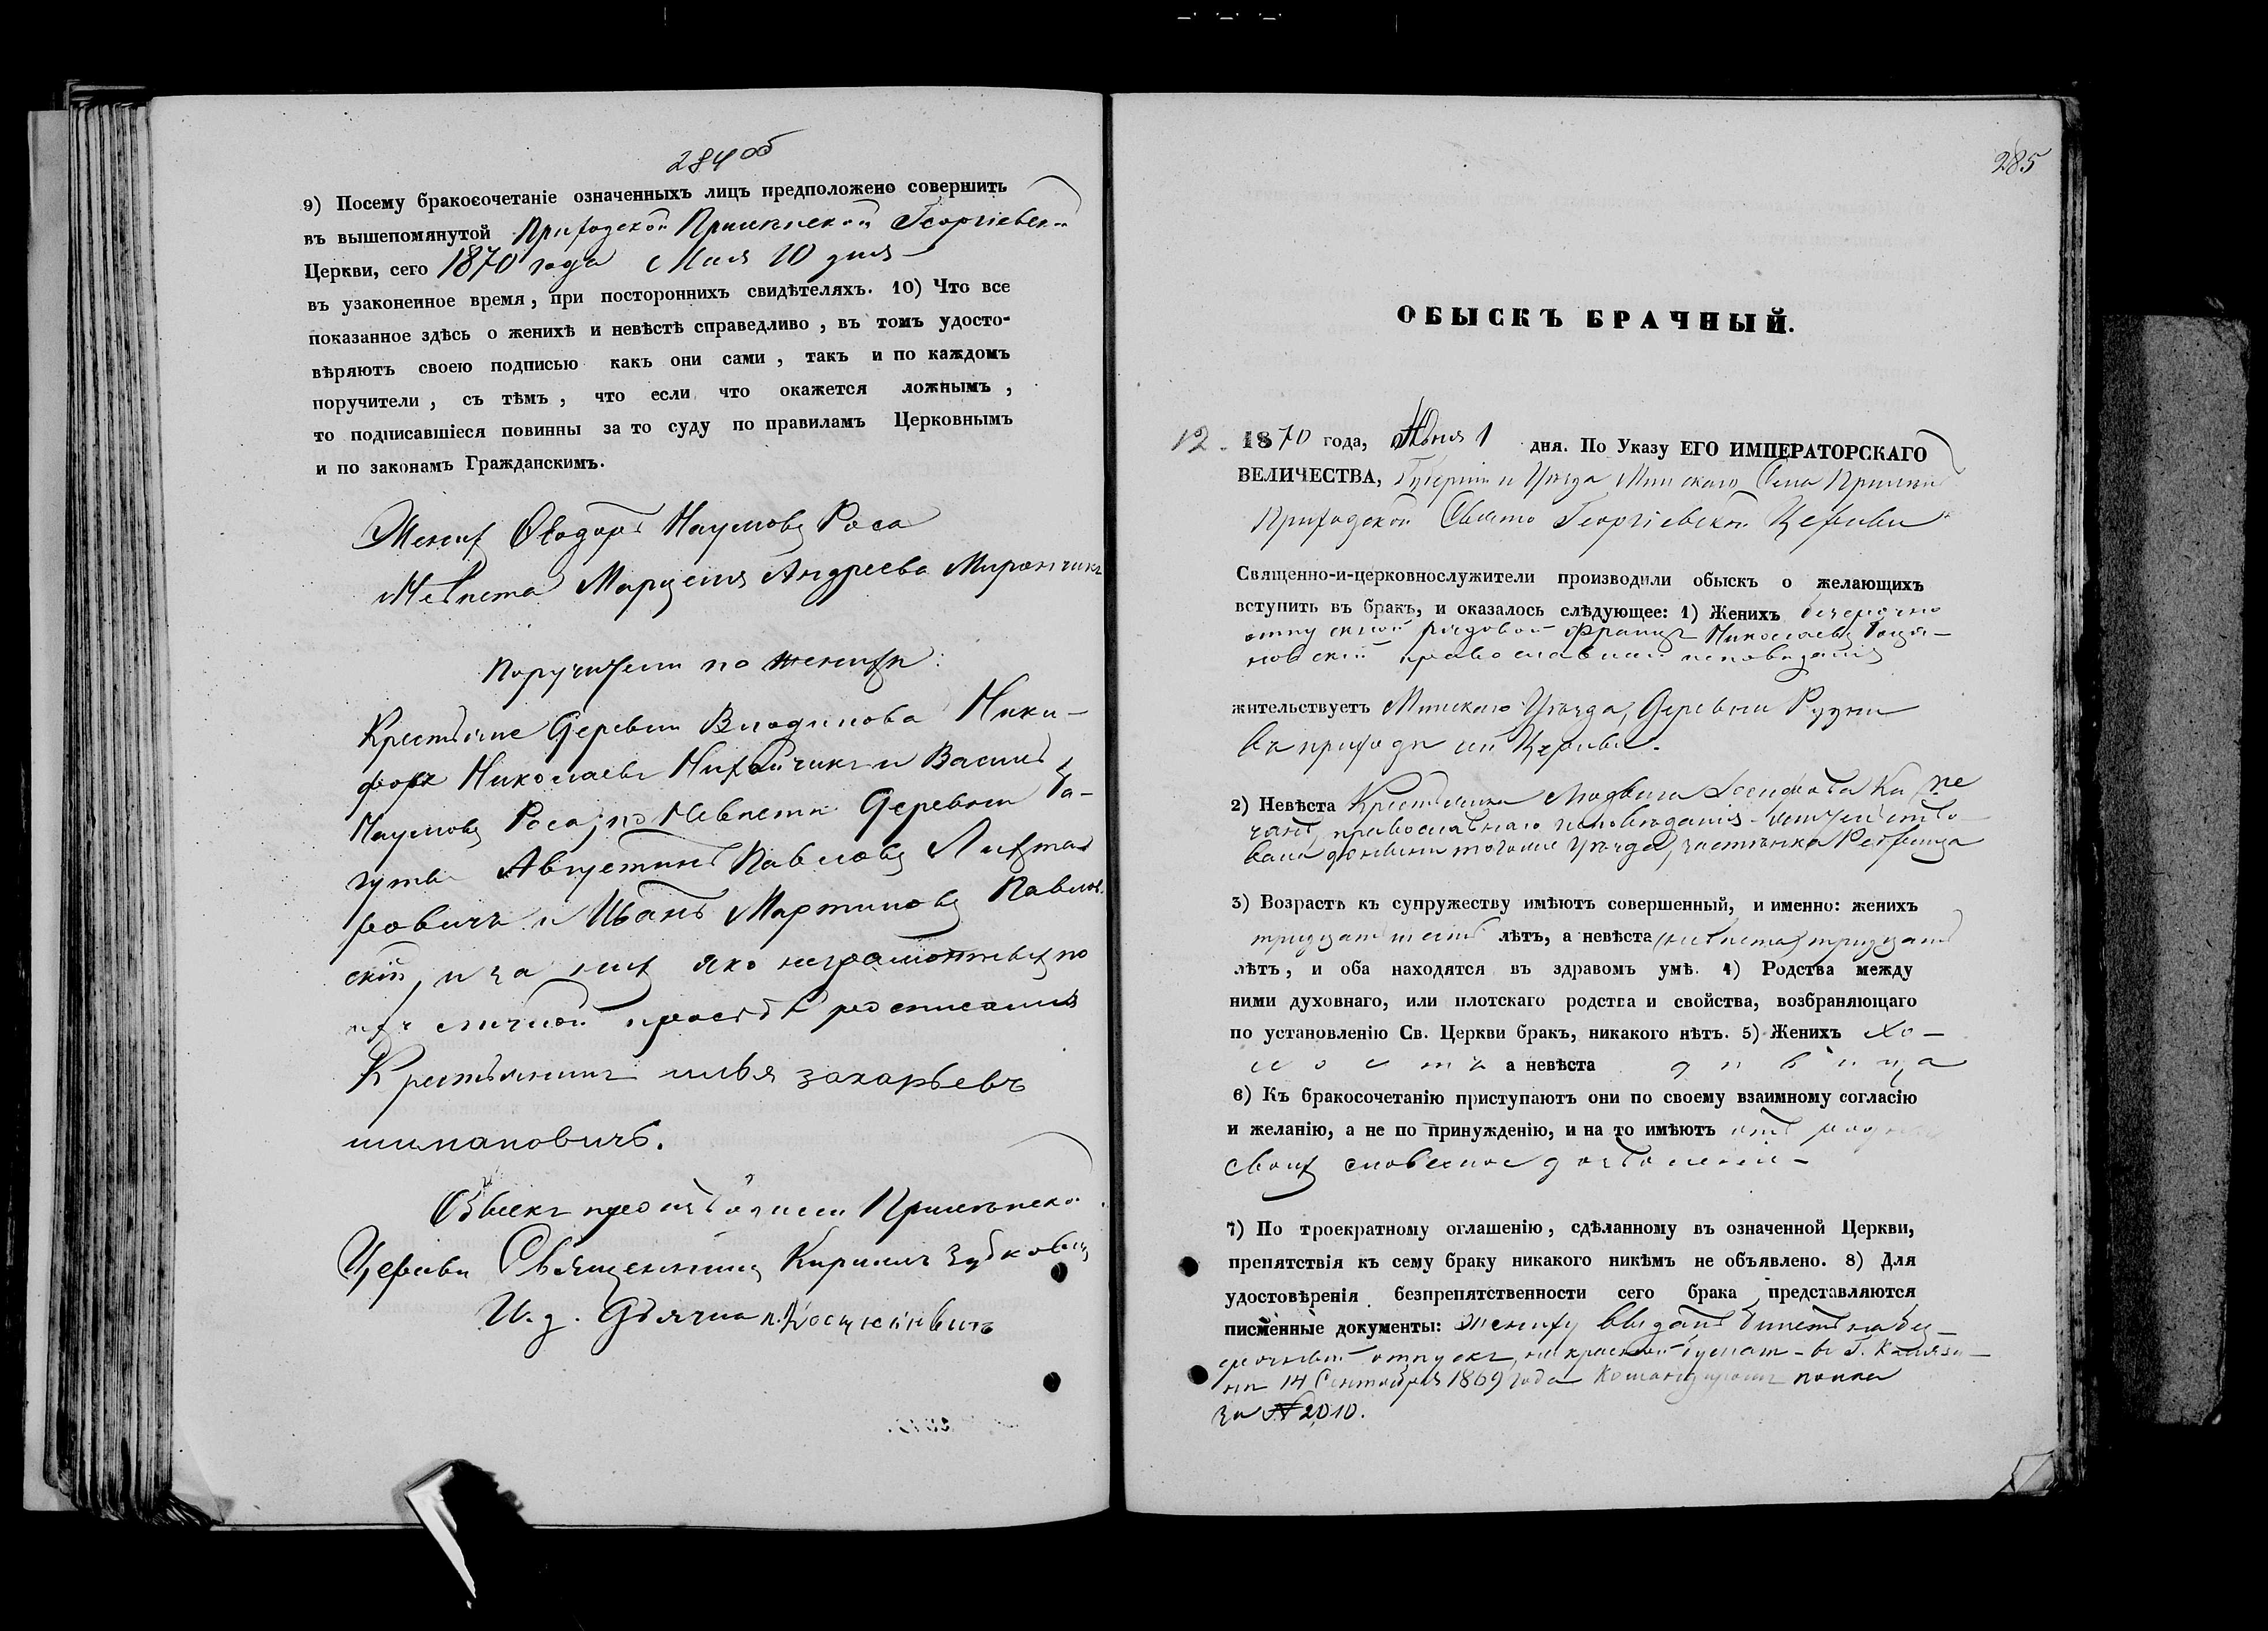 284 об
9) Посему бракосочетаніе означенныхъ лицъ предположено совершить
въ вышепомянутой Приходской Прилѣпской Георгіевской
Церкви, сего 1870 года Мая 10 дня
въ узаконенное время, при постороннихъ свидѣтеляхъ. 10) Что все
показанное здѣсь о женихѣ и невѣстѣ справедливо, въ томъ удосто-
вѣряютъ своею подписью какъ они сами, такъ и по каждомъ
поручители, съ тѣмъ, что если что окажется ложнымъ,
то подписавшіеся повинны за то суду по правиламъ Церковнымъ
и по законамъ Гражданскимъ.
Женихъ Ѳеодоръ Наумовъ Роса
Невѣста Марцеля Андреева Миранчикъ
Поручители по женихѣ:
Крестьяне Деревни Ники-
форъ Николаевъ и Василь
Наумовъ Роса; по Невѣстѣ Деревни Ба-
гуты Августинъ Павловъ Лихта-
ровичъ и Иванъ Мартиновъ Павлов-
скій, и за ихъ яко неграмотныхъ по
ихъ личной просьбѣ росписался
Крестьянинъ илья захарьевъ
шимановичъ.
Обыскъ производили Прилѣпской
Церкви Священникъ Кириллъ Зубковичъ
И. д. Дьячка
285
ОБЫСКЪ БРАЧНЫЙ.
12. 1870 года, Юня 1 дня. По Указу ЕГО ИМПЕРАТОРСКАГО
ВЕЛИЧЕСТВА, Губерніи и Уѣзда Минскаго Села Прилѣпъ
Приходской Свято Георгіевской Церкви
Священно-и-церковнослужители производили обыскъ о желающихъ
вступить въ бракъ, и оказалось слѣдующее: 1) Женихъ безсрочно
отпускной рядовой Францъ Николаевъ
православнаго исповѣданія
жительствуетъ Минскаго Уѣзда, Деревни Рудни
въ приходѣ сей Церкви.
2) Невѣста Крестьянка Людвига Іосифова
православнаго исповѣданія жительство
вала донынѣ тогоже Уѣзда,
3) Возрастъ къ супружеству имѣютъ совершенный, и именно: женихъ
тридцать шесть лѣтъ, а невѣста (невѣста) тридцать
лѣтъ, и оба находятся въ здравомъ умѣ. 4) Родства между
ними духовнаго, или плотскаго родства и свойства, возбраняющаго
по установленію Св. Церкви бракъ, никакого нѣтъ. 5) Женихъ хо-
лостъ а невѣста дѣвица
6) Къ бракосочетанію приступаютъ они по своему взаимному согласію
и желанію, а не по принужденію, и на то имѣютъ отъ родныхъ
своихъ словесное дозволеніе
7) По троекратному оглашенію, сдѣланному въ означенной Церкви,
препятствія къ сему браку никакого никѣмъ не объявлено. 8) Для
удостовѣренія безпрепятственности сего брака представляются
писменные документы: Жениху выданъ билетъ на без-
срочный отпускъ, на красной бумагѣ въ Г. Калязи-
нѣ 14 Сентября 1869 года Командиромъ полка
за № 2010.